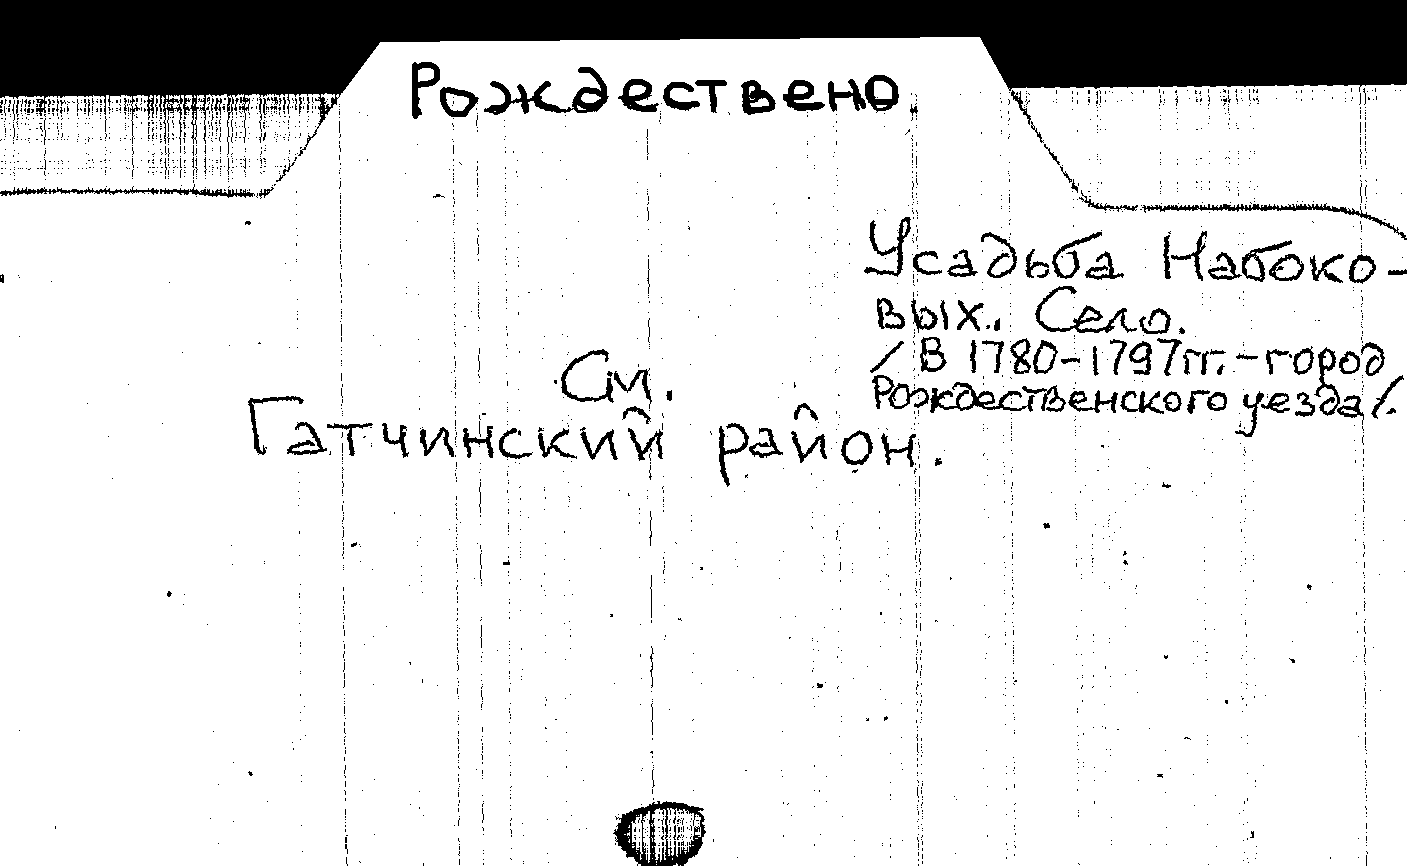 Рождествено.
Усадьба Набоко-
вых. Село.
/ В 1780-1797гг. - город
Рождественского уезда /.
См.
Гатчинский район.